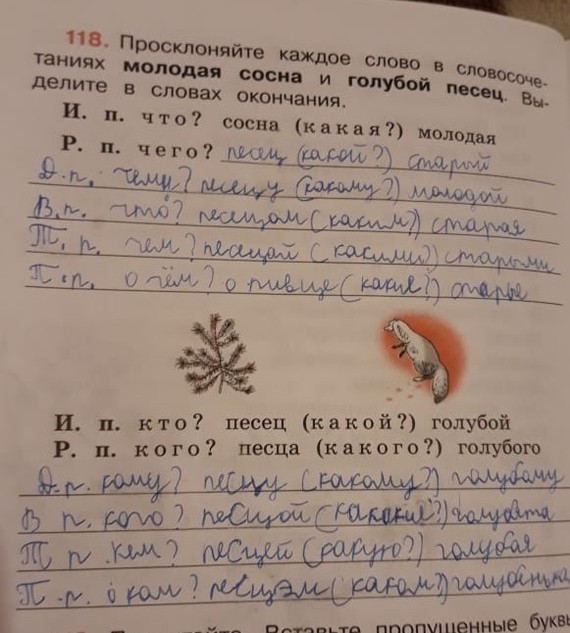 118. Просклоняйте каждое слово в словосоче-
таниях молодая сосна и голубой песец. Вы-
делите в словах окончания.
И. п. что? сосна (какая?) молодая
Р. п. чего? песец (какой?) старый
Д.п. чему? песецу (какому?) молодой
В.п. что? песецом (каким?) старая
Т. п. чем? песецой (какими?) старыми
П.п. о чём? о (какие?) старые
И. п. кто? песец (какой?) голубой
Р. п. кого? песца (какого?) голубого
Д.п. кому? песцу (какому?) голубому
В п. кого? песцой
Т п. кем? песцей (какую?) голубая
П.п. о ком? песцэм (каком?)
Вставьте пропущенные буквы